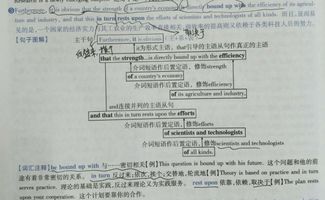 Furthermore, it is obvious that the strength of a country's economy is directly bound up with the efficiency of its agricul-
ture and industry, and that this in turn rests upon the efforts of scientists and technologists of all kinds. 而且,显而易
见的是,一个国家的经济实力与其工农业的生产效率直接相关,而效率的提高则又依赖于各类科技人员的努力。
【句子图解】
主干句
Furthermore, it is obvious
it为形式主语,that引导的主语从句作真正的主语
that the strength...is directly bound up with the efficiency
介词短语作后置定语,修饰strength
of a country's economy
介词短语作后置定语,修饰efficiency
of its agriculture and industry,
and连接并列的主语从句
and that this in turn rests upon the efforts
介词短语作后置定语,修饰efforts
of scientists and technologists
介词短语作后置定语,修饰scientists and technologists
of all kinds.
【词汇注释】be bound up with 与……密切相关【例】This question is bound up with his future. 这个问题和他的前
途有着非常密切的关系。 in turn 反过来;依次,挨个;交替地,轮流地【例】Theory is based on practice and in turn
serves practice. 理论的基础是实践,反过来理论又为实践服务。 rest upon 依靠,依赖,取决于【例】The plan rests
upon your cooperation. 这个计划要靠你的合作。